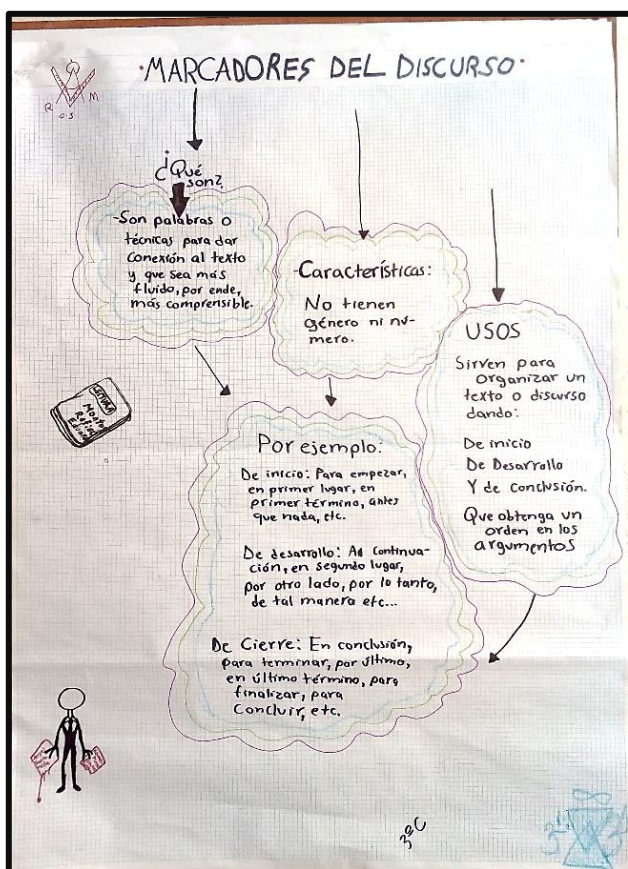 ·MARCADORES DEL DISCURSO·
R M
O.S
¿Qué
son?
-Son palabras o
técnicas para dar
conexión al texto
y que sea más
fluído, por ende,
más comprensible.
-Características:
No tienen
género ni nú-
mero.
USOS
Sirven para
organizar un
texto o discurso
dando:
De inicio
De Desarrollo
Y de conclusión.
Que obtenga un
orden en los
argumentos
LEITURA
Por ejemplo:
De inicio: Para empezar,
en primer lugar, en
primer término, antes
que nada, etc.
De desarrollo: A continua-
ción, en segundo lugar,
por otro lado, por lo tanto,
de tal manera etc...
De Cierre: En conclusión,
para terminar, por último,
en último término, para
finalizar, para
Concluir, etc.
3ºC